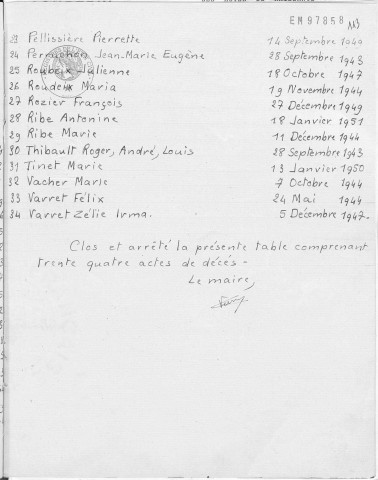 EM97858 A13
23 Pellissière Pierrette 14 Septembre 1949
24 Perruchon Jean-Marie Eugène 28 Septembre 1943
25 Roubeix Julienne 18 Octobre 1947
26 Roudeix Maria 19 Novembre 1944
27 Rozier François 27 Décembre 1949
28 Ribe Antonine 18 Janvier 1951
29 Ribe Marie 11 Décembre 1944
30 Thibault Roger, André, Louis 28 Septembre 1943
31 Tinet Marie 13 Janvier 1950
32 Vacher Marie 7 Octobre 1944
33 Varret Félix 24 Mai 1944
34 Varret Zélie Irma. 5 Décembre 1947.
Clos et arrêté la présente table comprenant
trente quatre actes de décés -
Le maire,